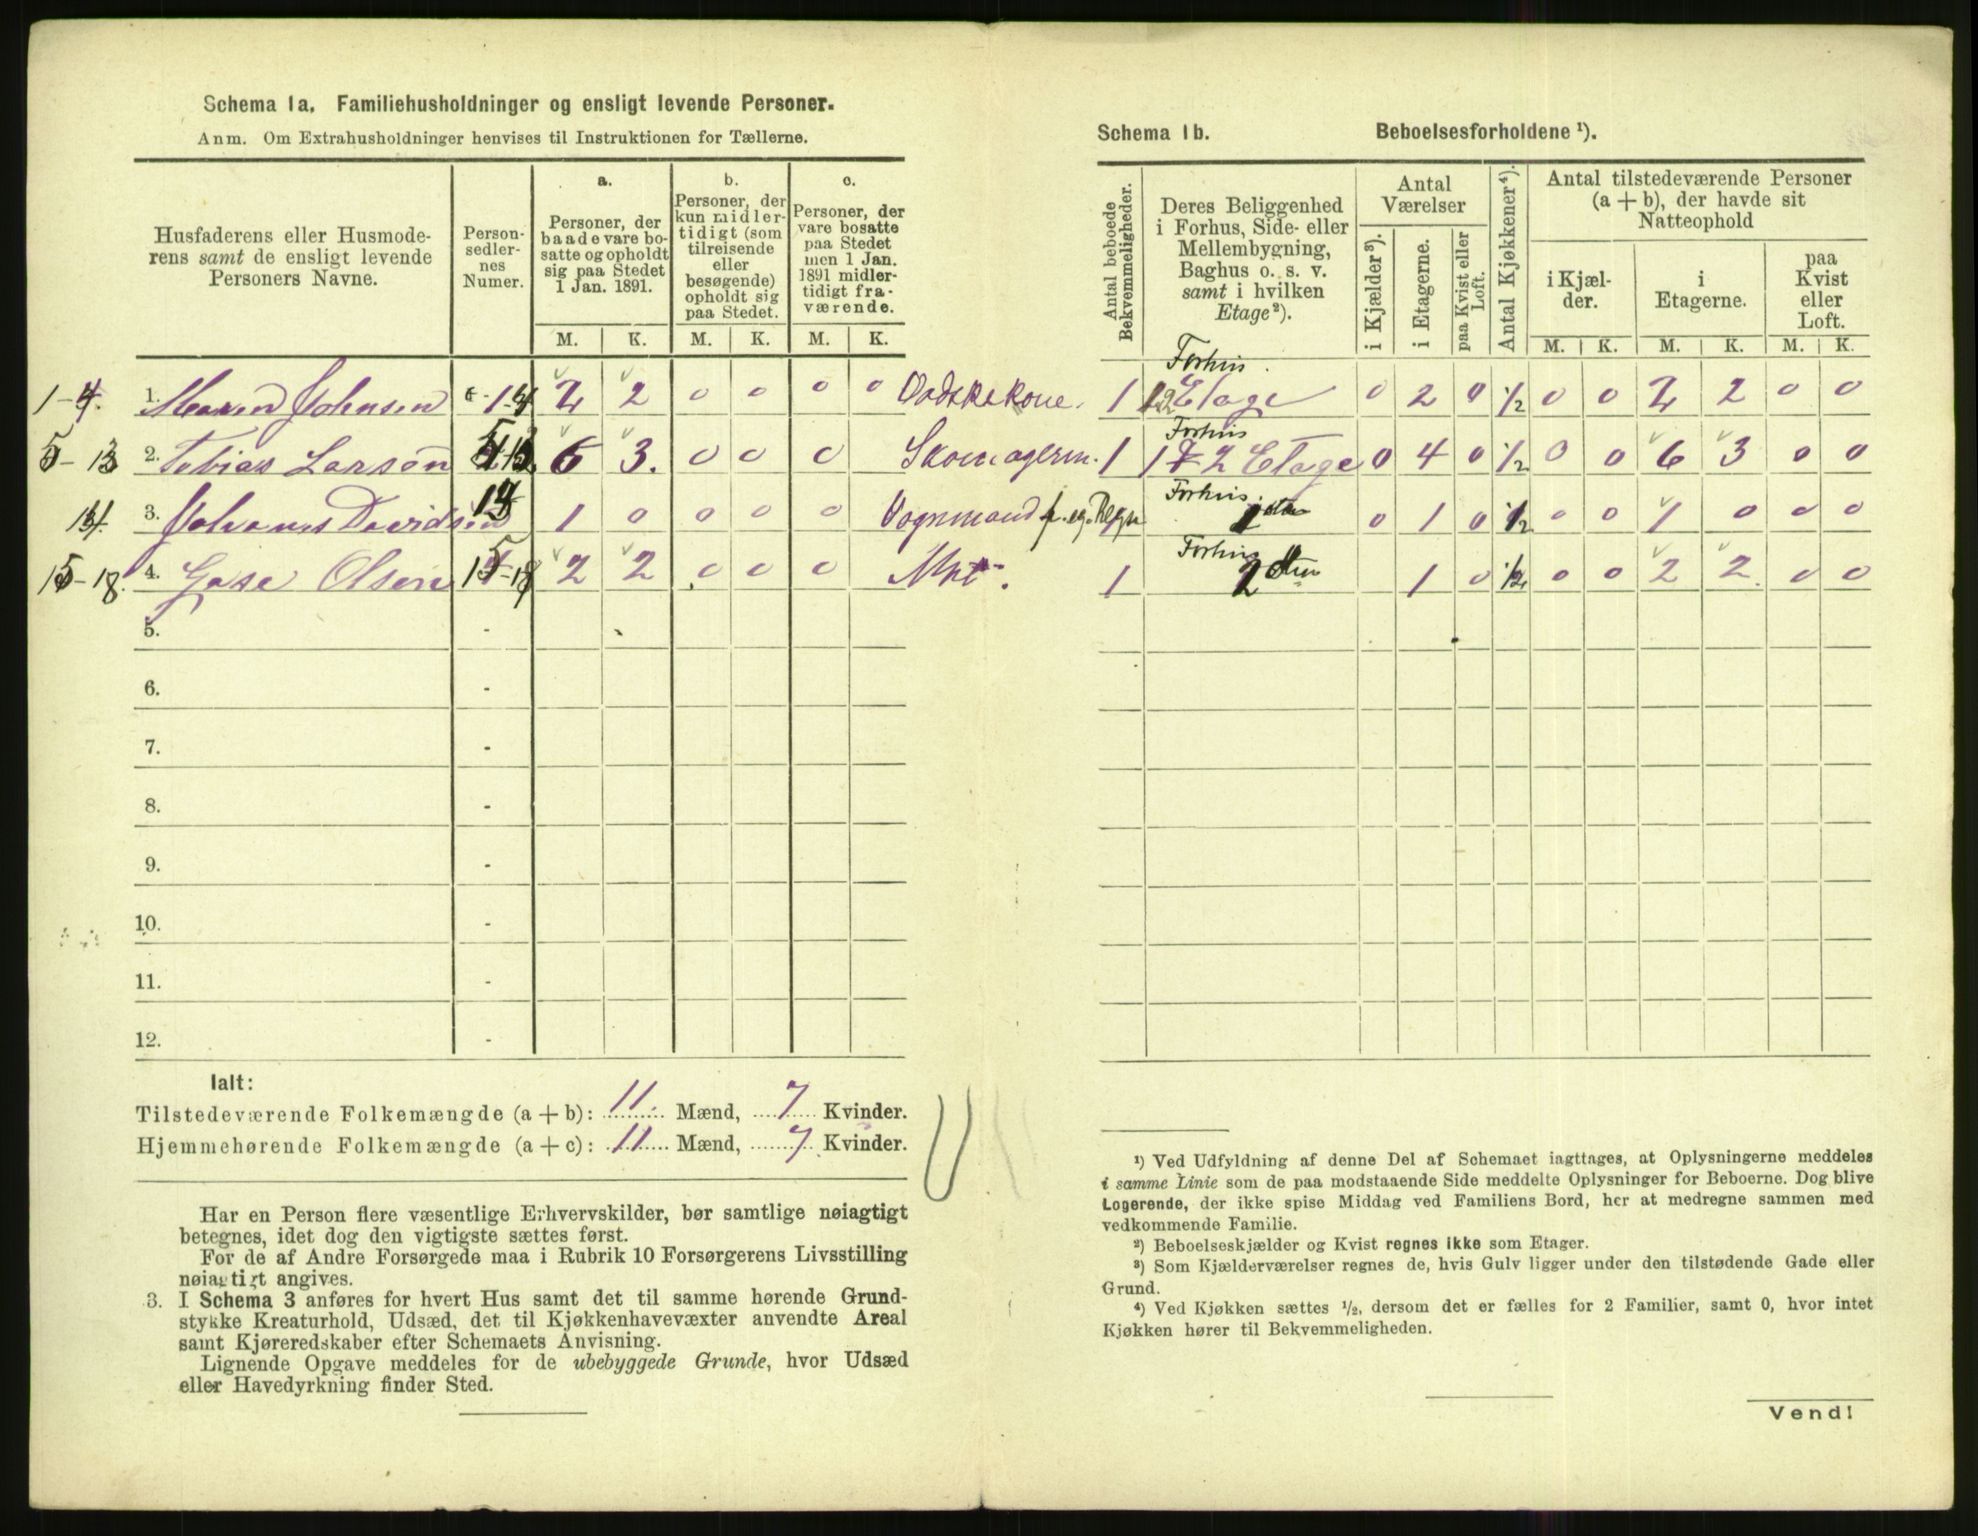 Schema 1a. Familiehusholdninger og ensligt levende Personer.
Anm. Om Extrahusholdninger henvises til Instruktionen for Tællerne.
Husfaderens eller Husmode-
rens samt de ensligt levende
Personers Navne.
Person-
sedler-
nes
Numer.
a.
Personer, der
baade vare bo-
satte og opholdt
sig paa Stedet
1 Jan. 1891.
b.
Personer, der
kun midler-
tidigt (som
tilreisende
eller
besøgende)
opholdt sig
paa Stedet.
c.
Personer, der
vare bosatte
paa Stedet
men 1 Jan.
1891 midler-
tidigt fra-
værende.
M. K. M. K. M. K.
1-4. 1. Maren Johnsen 1-4 2 2 0 0 0 0 Vadskekone.
5-13 2. Tobias Larsen 5-13 6 3. 0 0 0 Skomagerm.
14. 3. Johannes Davidsen 14 1 0 0 0 0 0 Vognmand f. eg. Regn
15-18. 4. Olsen 15-18 2 2 0 0 0
5. -
6. -
7. -
8. -
9. -
10. -
11. -
12. -
Ialt:
Tilstedeværende Folkemængde (a + b): 11. Mænd, 7 Kvinder.
Hjemmehørende Folkemængde (a + c): 11 Mænd, 7 Kvinder.
Har en Person flere væsentlige Erhvervskilder, bør samtlige nøiagtigt
betegnes, idet dog den vigtigste sættes først.
For de af Andre Forsørgede maa i Rubrik 10 Forsørgerens Livsstilling
nøiagtigt angives.
3. I Schema 3 anføres for hvert Hus samt det til samme hørende Grund-
stykke Kreaturhold, Udsæd, det til Kjøkkenhavevæxter anvendte Areal
samt Kjøreredskaber efter Schemaets Anvisning.
Lignende Opgave meddeles for de ubebyggede Grunde, hvor Udsæd
eller Havedyrkning finder Sted.
Schema 1b. Beboelsesforholdene ¹).
Antal beboede
Bekvemmeligheder.
Deres Beliggenhed
i Forhus, Side- eller
Mellembygning,
Baghus o. s. v.
samt i hvilken
Etage²).
Antal
Værelser
i Kjælder³).
i Etagerne.
paa Kvist eller
Loft.
Antal Kjøkkener⁴).
Antal tilstedeværende Personer
(a + b), der havde sit
Natteophold
i Kjæl-
der.
i
Etagerne.
paa
Kvist
eller
Loft.
M. K. M. K. M. K.
Forhus.
1 Etage 0 2 0 ½ 0 0 2 2 0 0
Forhus
1 2 Etage 0 4 0 ½ 0 0 6 3 0 0
Forhus.
1 0 1 0 ½ 0 0 1 0 0 0
Forhus
1 2 1 0 ½ 0 0 2 2 0 0
¹) Ved Udfyldning af denne Del af Schemaet iagttages, at Oplysningerne meddeles
i samme Linie som de paa modstaaende Side meddelte Oplysninger for Beboerne. Dog blive
Logerende, der ikke spise Middag ved Familiens Bord, her at medregne sammen med
vedkommende Familie.
²) Beboelseskjælder og Kvist regnes ikke som Etager.
³) Som Kjælderværelser regnes de, hvis Gulv ligger under den tilstødende Gade eller
Grund.
⁴) Ved Kjøkken sættes ½, dersom det er fælles for 2 Familier, samt 0, hvor intet
Kjøkken hører til Bekvemmeligheden.
Vend!